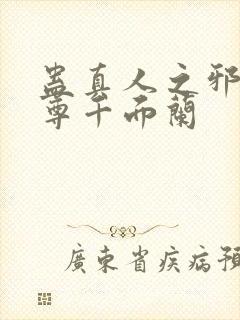 蛊真人之邪
尊千而蘭
廣東省疾病預